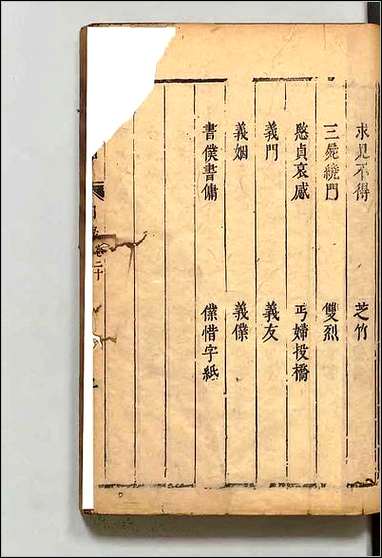 求見不得 芝竹
三毙繞門 雙烈
愍貞哀感 丐婦投橋
義門 義友
義姻 義僕
書僕書傭 僕惜字紙
目 卷二十